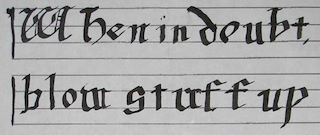 When in doubt,
blow stuff up